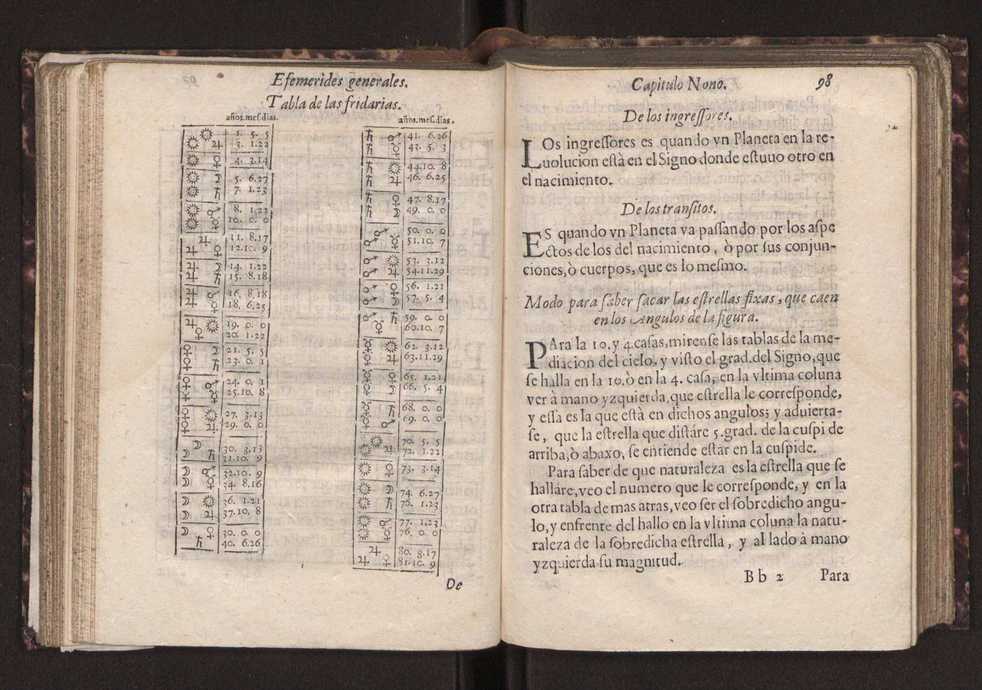 Efemerides generales.
Tabla de las fridarias.
años. mes. dias.
☉ 1. 5. 5
☉ ♃ 3. 1.22
☉ ♀ 4. 3.14
☉ ☽ 5. 6.27
☉ ♄ 7. 1.23
☉ ♂ 8. 1.22
☉ 10. 0. 0
♃ 11. 8.17
♃ ♀ 12.10. 9
♃ ☽ 14. 1.22
♃ ♄ 15. 8.18
♃ ♂ 16. 8.18
♃ ♀ 18. 6.25
♃ ☉ 19. 0. 0
♀ 20. 1.22
♀ ☽ 21. 5. 5
♀ ♄ 23. 0. 1
♀ ♂ 24. 0. 1
25.10. 8
♀ ☉ 27. 3.13
♀ ♃ 29. 0. 0
☽ 30. 3.13
☽ ♄ 31.10. 9
☽ ♂ 32.10. 9
☽ ♀ 34. 8.16
☽ ☉ 36. 1.21
☽ ♃ 37.10. 8
☽ ♀ 30. 0. 0
♄ 40. 6.26
años. mes. dias.
♄ ♂ 41. 6.26
♄ ♀ 43. 5. 3
♄ ☉ 44.10. 8
♄ ♃ 46. 6.25
♄ ♀ 47. 8.17
♄ ☽ 49. 0. 0
♂ 50. 0. 0
♂ ♀ 51.10. 7
♂ ☉ 53. 3.12
♂ ♃ 54.11.29
♂ ♀ 56. 1.21
♂ ☽ 57. 5. 4
♂ ♄ 59. 0. 0
♀ 60.10. 7
♀ ☉ 62. 3.12
♀ ♃ 63.11.29
♀ ♀ 65. 1.21
♀ ☽ 66. 5. 4
♀ ♄ 68. 0. 0
♀ ♂ 69. 0. 0
☉ 70. 5. 5
☉ ♃ 72. 1.22
☉ ♀ 73. 3.14
☉ ☽ 74. 6.27
☉ ♄ 76. 1.23
☉ ♂ 77. 1.23
☉ ♀ 76. 0. 0
♃ 80. 8.17
♃ ♀ 81.10. 9
De
Capitulo Nono. 98
De los ingressores.
LOs ingressores es quando vn Planeta en la re-
uolucion està en el Signo donde estuuo otro en
el nacimiento.
De los transitos.
ES quando vn Planeta va passando por los aspe
ctos de los del nacimiento, ò por sus conjun-
ciones, ò cuerpos, que es lo mesmo.
Modo para saber sacar las estrellas fixas, que caen
en los Angulos de la figura.
PAra la 10. y 4. casas, mirense las tablas de la me-
diacion del cielo, y visto el grad. del Signo, que
se halla en la 10. ò en la 4. casa, en la vltima coluna
ver à mano yzquierda, que estrella le corresponde,
y essa es la que està en dichos angulos; y aduierta-
se, que la estrella que distáre 5. grad. de la cuspi de
arriba, ò abaxo, se entiende estar en la cuspide.
Para saber de que naturaleza es la estrella que se
halláre, veo el numero que le corresponde, y en la
otra tabla de mas atras, veo ser el sobredicho angu-
lo, y enfrente del hallo en la vltima coluna la natu-
raleza de la sobredicha estrella, y al lado à mano
yzquierda su magnitud.
Bb 2 Para